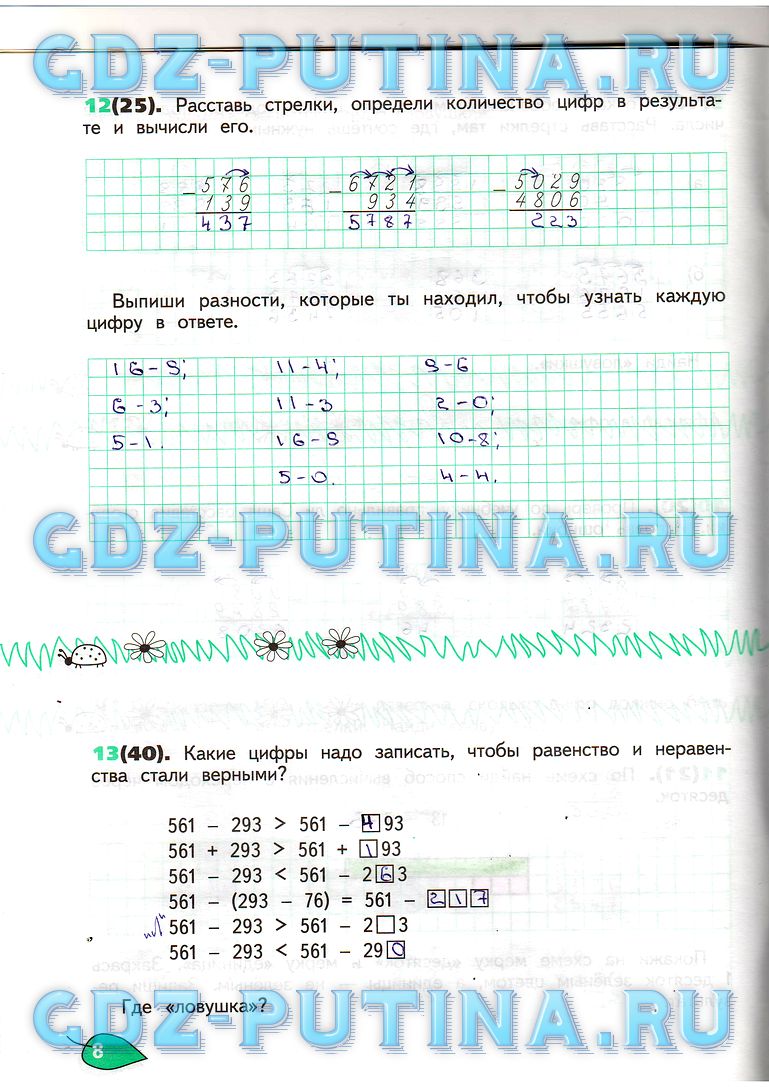 GDZ-PUTINA.RU
12(25). Расставь стрелки, определи количество цифр в результа-
те и вычисли его.
576 6721 5029
− 139 − 934 − 4806
437 5787 223
Выпиши разности, которые ты находил, чтобы узнать каждую
цифру в ответе.
16-9; 11-4; 9-6
6-3; 11-3 2-0;
5-1. 16-9 10-8;
5-0. 4-4.
GDZ-PUTINA.RU
13(40). Какие цифры надо записать, чтобы равенство и неравен-
ства стали верными?
561 − 293 > 561 − 493
561 + 293 > 561 + 193
561 − 293 < 561 − 263
561 − (293 − 76) = 561 − 217
"Л" 561 − 293 > 561 − 2□3
561 − 293 < 561 − 290
Где «ловушка»?
GDZ-PUTINA.RU
8